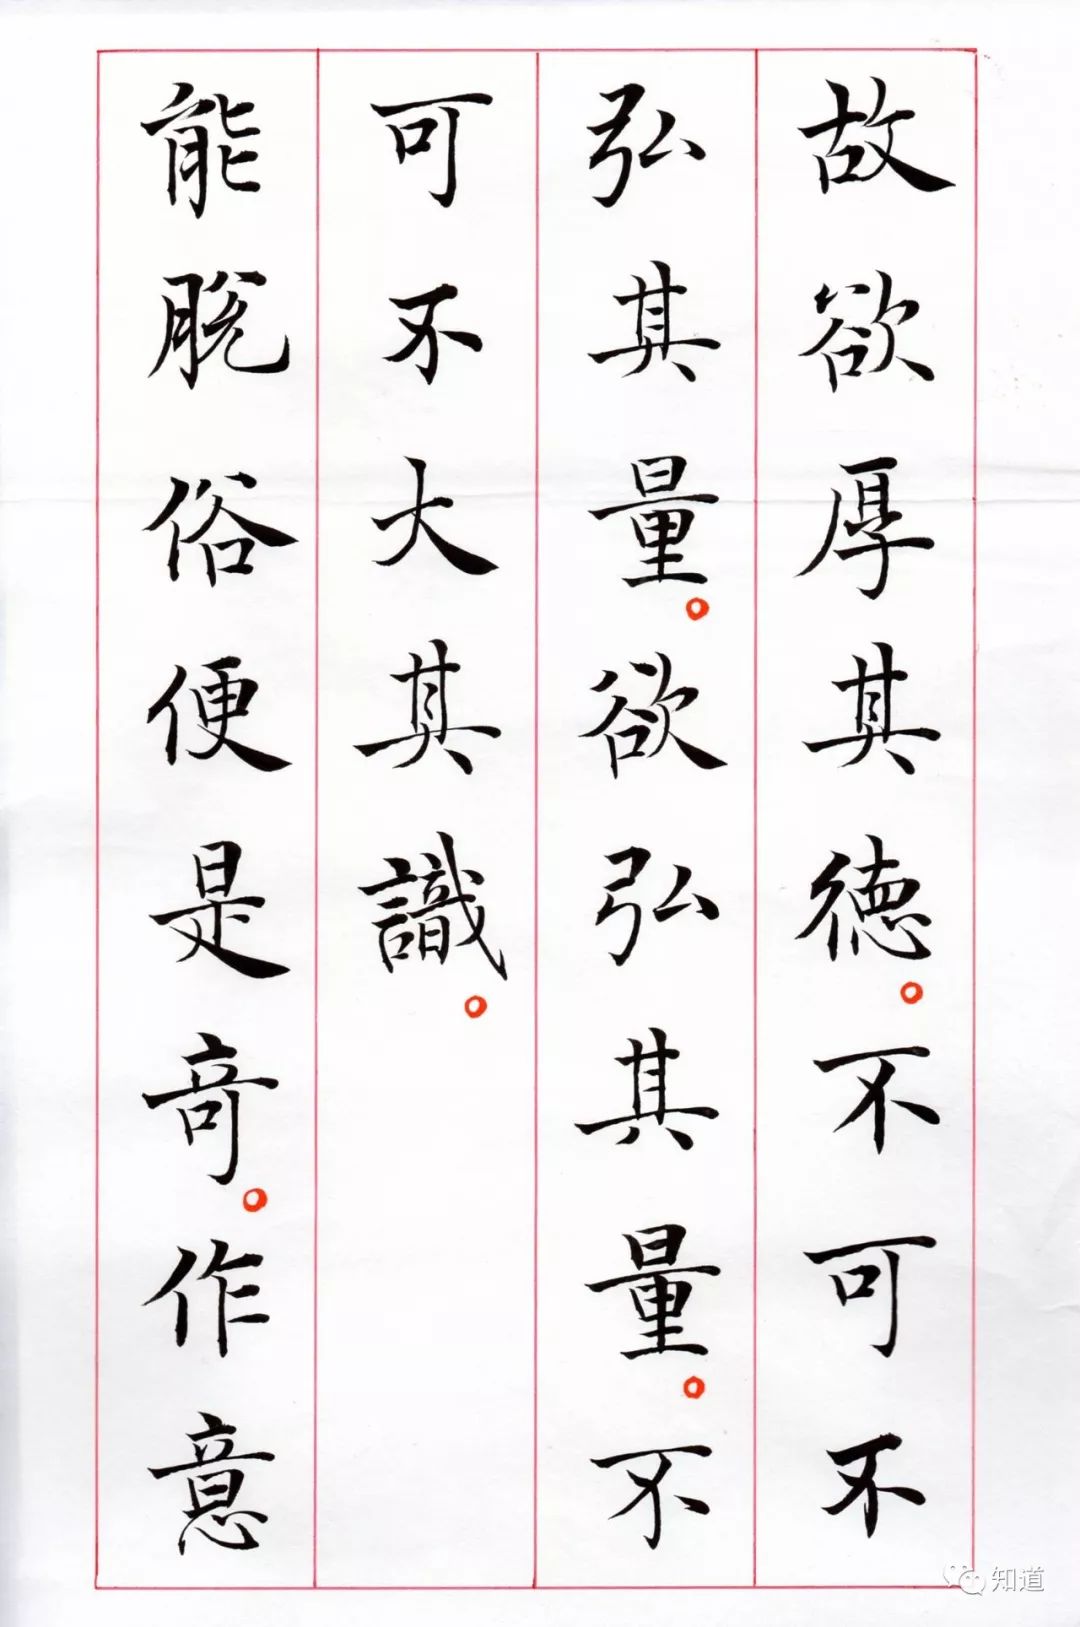 故欲厚其德。不可不
弘其量。欲弘其量。不
可不大其識。
能脫俗便是奇。作意
知道